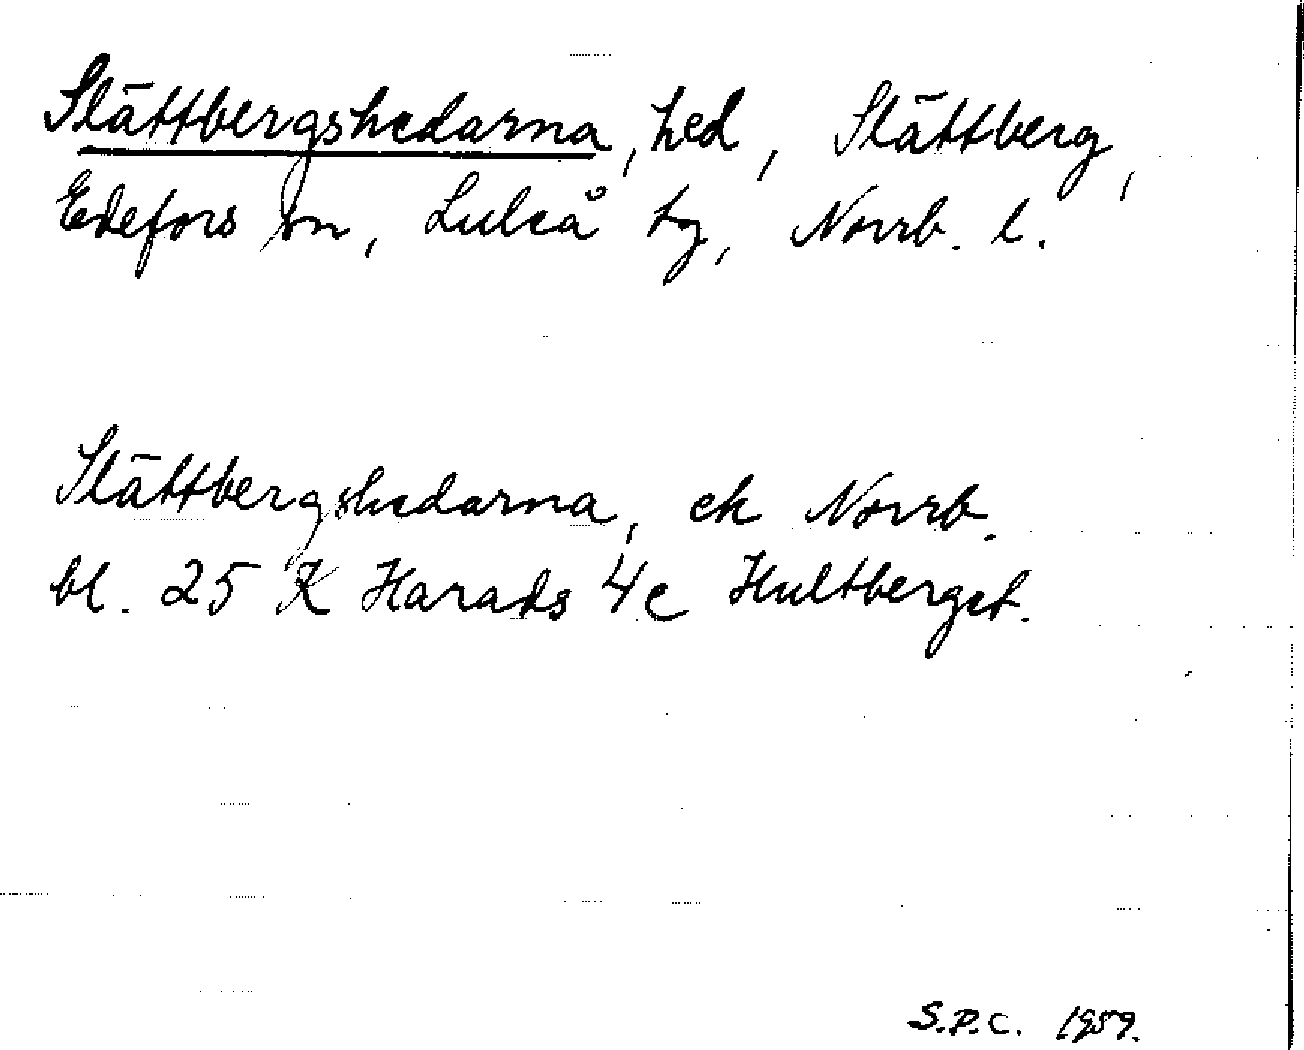 Slättbergshedarna, hed, Slättberg,
Edefors sn, Luleå tg, Norrb. l.
Slättbergshedarna, ek Norrb.
bl. 25 K Harads 4e Hultberget.
S.P.C. 1959.